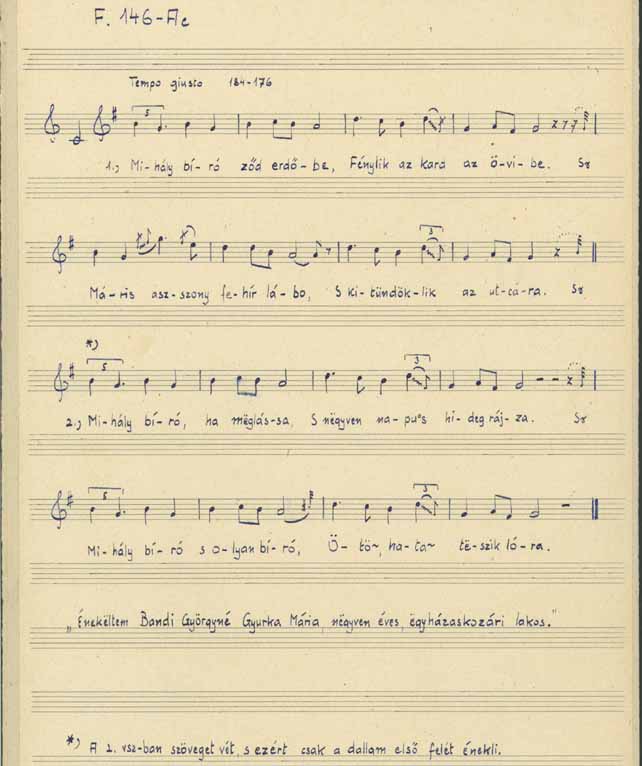 F. 146-Ac
Tempo giusto 184-176
5
1.) Mi-hály bí-ró ződ erdő-be, Fénylik az kard az ö-vi-be. Sr
3
Má-ris asz-szony fe-hír lá-bo, S ki-tündök-lik az ut-cá-ra. Sr
*)
5 3
2.) Mi-hály bí-ró, ha mëglás-sa, S nëgyven na-pu°s hi-deg ráj-za. Sr
5 3
Mi-hály bí-ró s o-lyan bí-ró, Ö-tö~, ha-ta~ të-szik ló-ra.
„Énekëltem Bandi Györgyné Gyurka Mária, nëgyven éves, ëgyházaskozári lakos."
*) A 2. vsz-ban szöveget vét, s ezért csak a dallam első felét énekli.